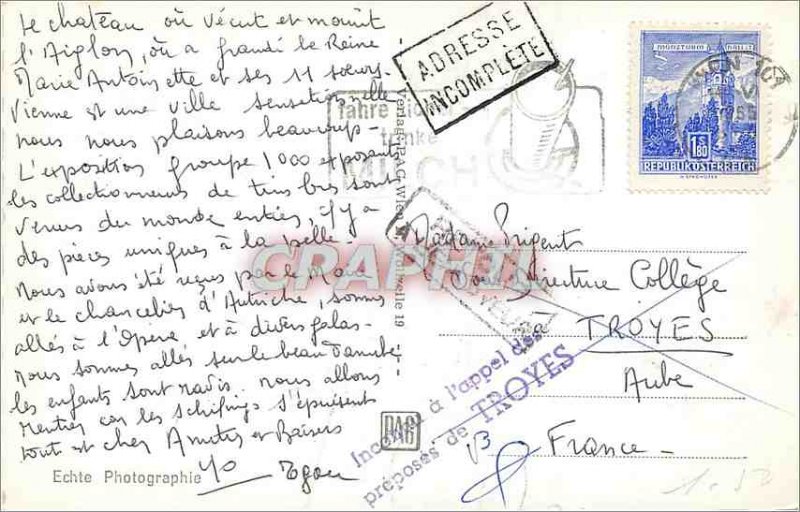 Le chateau où vécut et mourut
l'Aiglon, où a grandi la Reine
Marie Antoinette et ses 11 soeurs.
Vienne est une ville sensationnelle
nous nous plaisons beaucoup -
L'exposition groupe 1000 exposants
les collectionneurs de timbres sont
venus du monde entier, il y a
des pièces uniques à la pelle.
Nous avons été reçus par le Maire
et le chancelier d'Autriche, sommes
allés à l'Opera et à divers galas.
nous sommes allés sur le beau Danube
les enfants sont ravis. nous allons
rentrer car les schillings s'épuisent
tout est cher Amitiés et Baisers
Yo
Echte Photographie
ADRESSE
INCOMPLÈTE
fahre
trinke
MILCH
Verlag: P.A.G. Wien
19
PAG
MÜNZTURM HALL i.T.
1.80
REPUBLIK ÖSTERREICH
WIEN 101
Madame Prigent
Directrice Collège
à TROYES
Aube
France -
Inconnu à l'appel des
préposés de TROYES
CPAPHIL